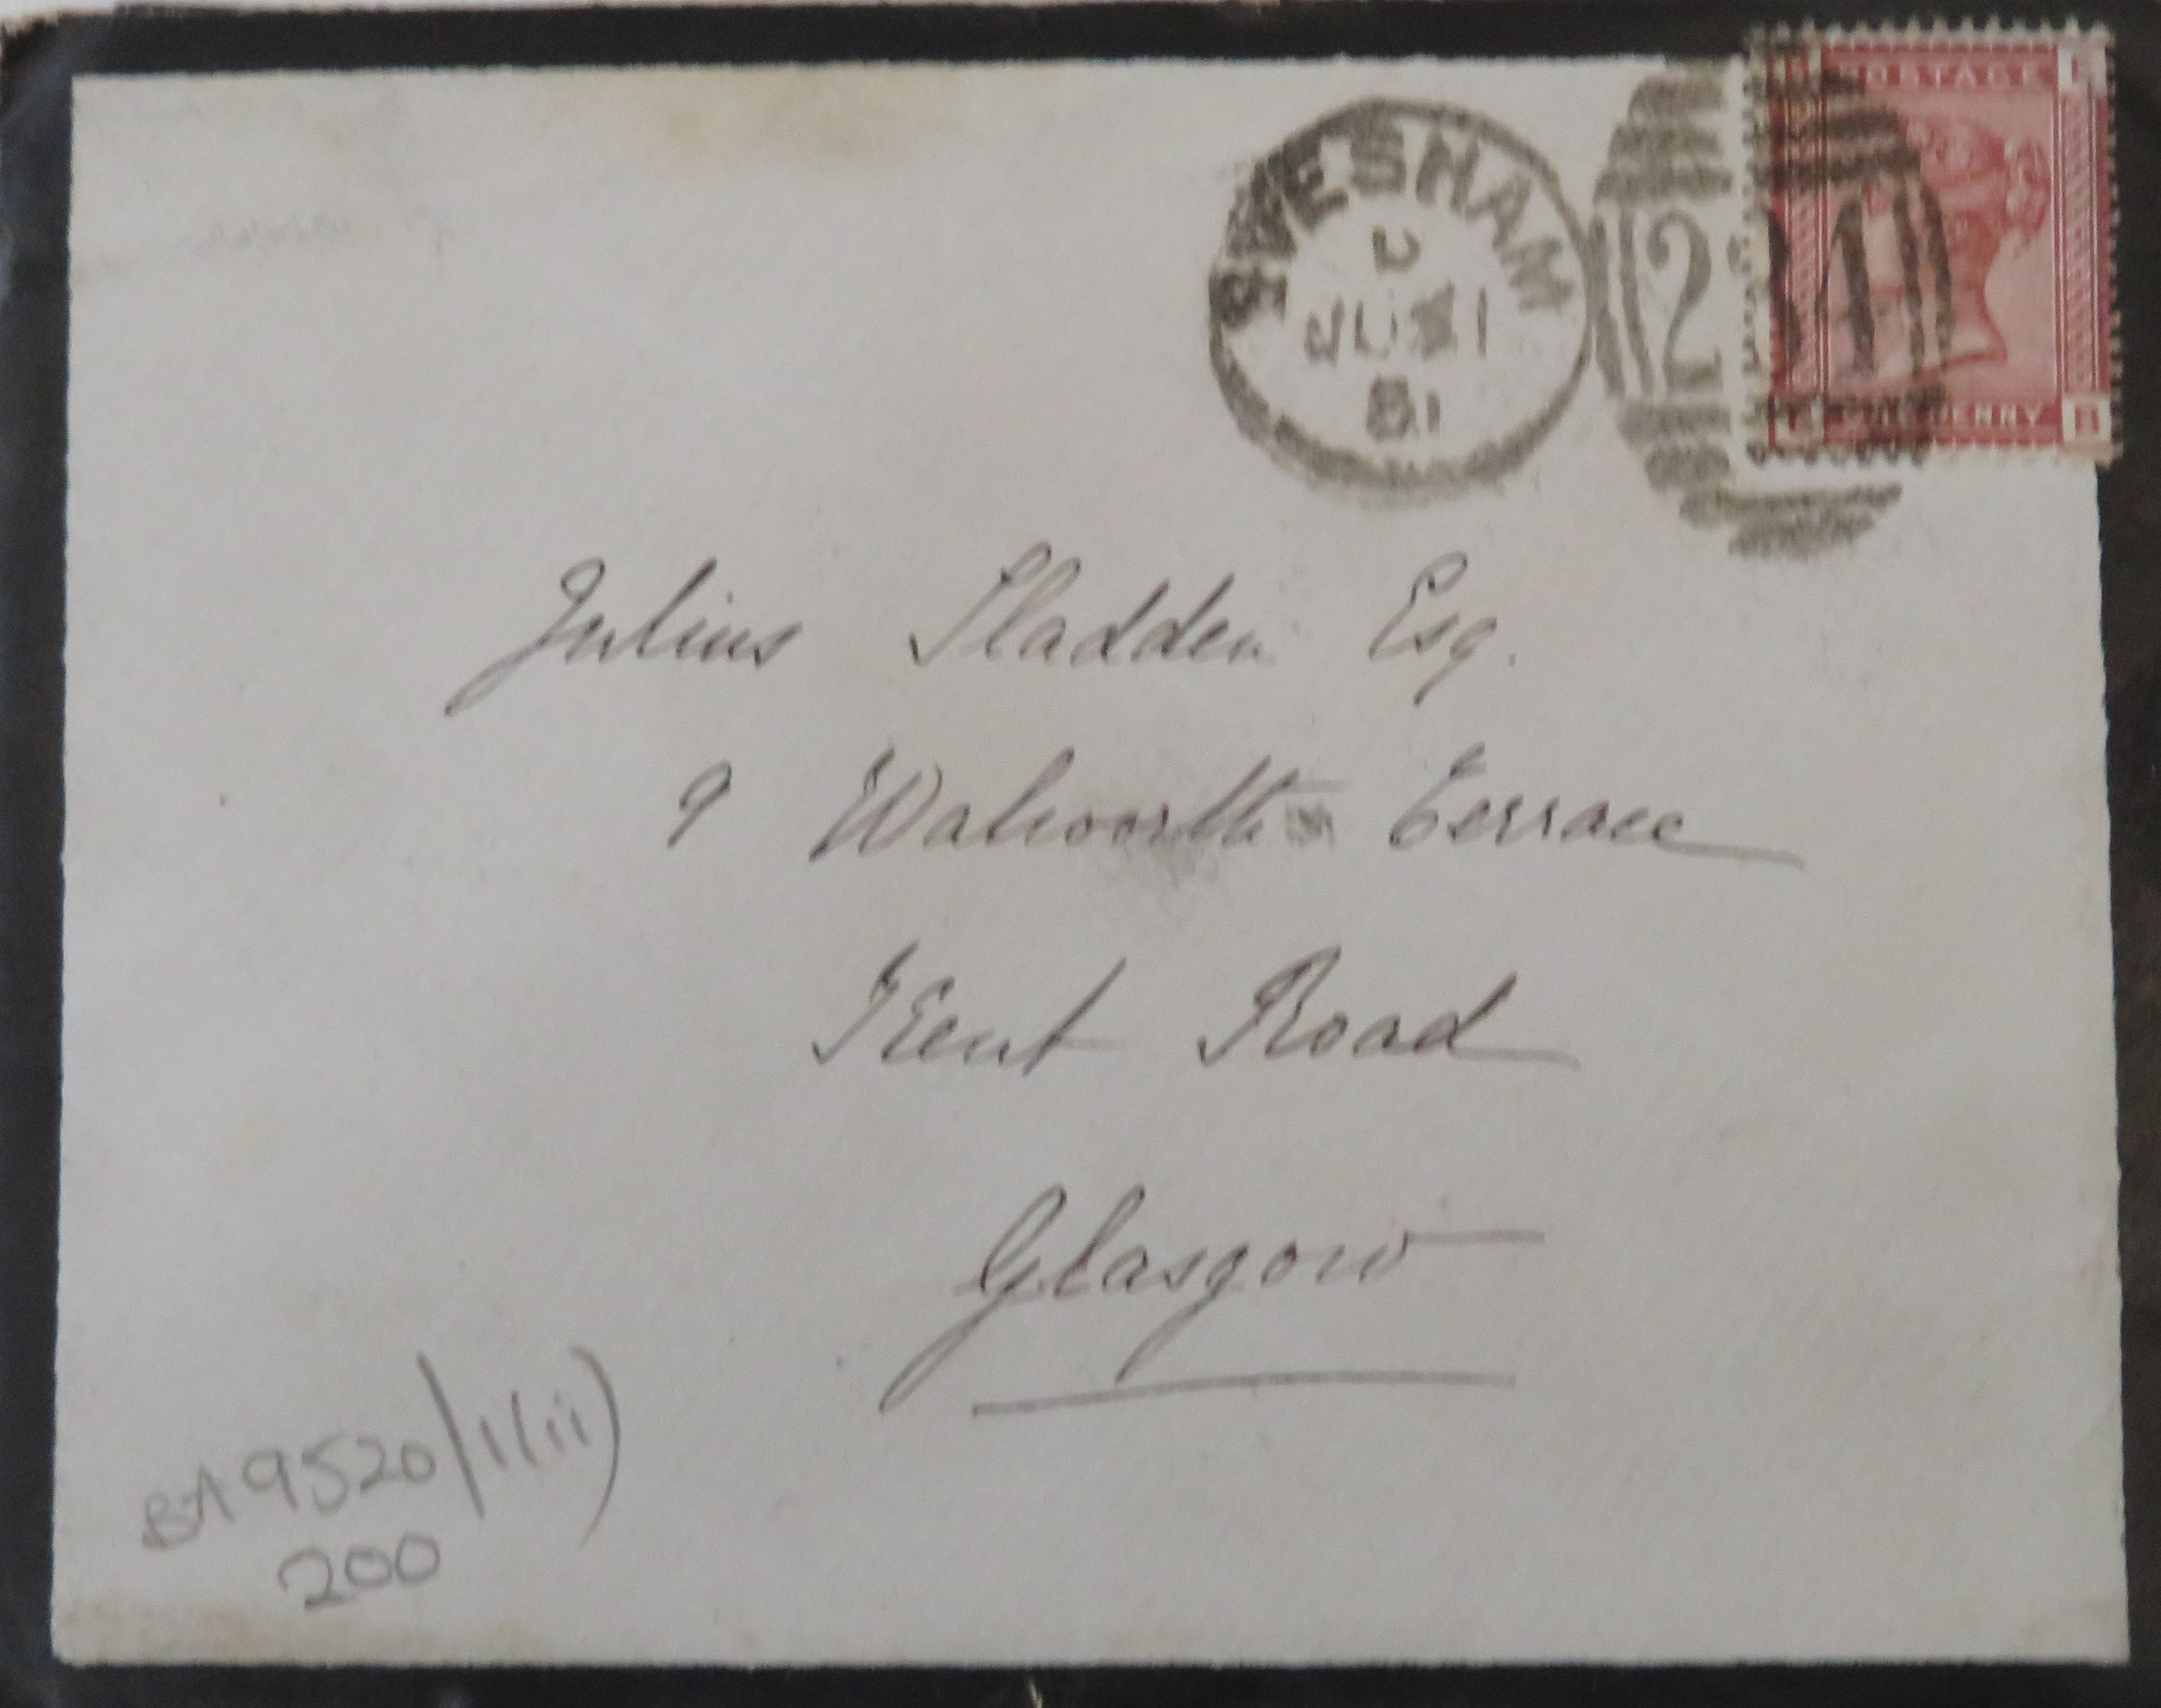 EVESHAM
81
POSTAGE
PENNY
B
Julius Sladden Esq.
9 Walworth Terrace
Kent Road
Glasgow
BA9520/1(ii)
200